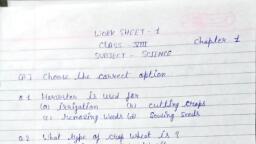 WORK SHEET - 1
CLASS - VIII Chapter 1
SUBJECT - SCIENCE
Q.1 Choose the correct option
Q.1 Harvester is used for
(a) irrigation (b) cutting crops
(c) removing weeds (d) sowing seeds
Q.2 What type of crop wheat is ?